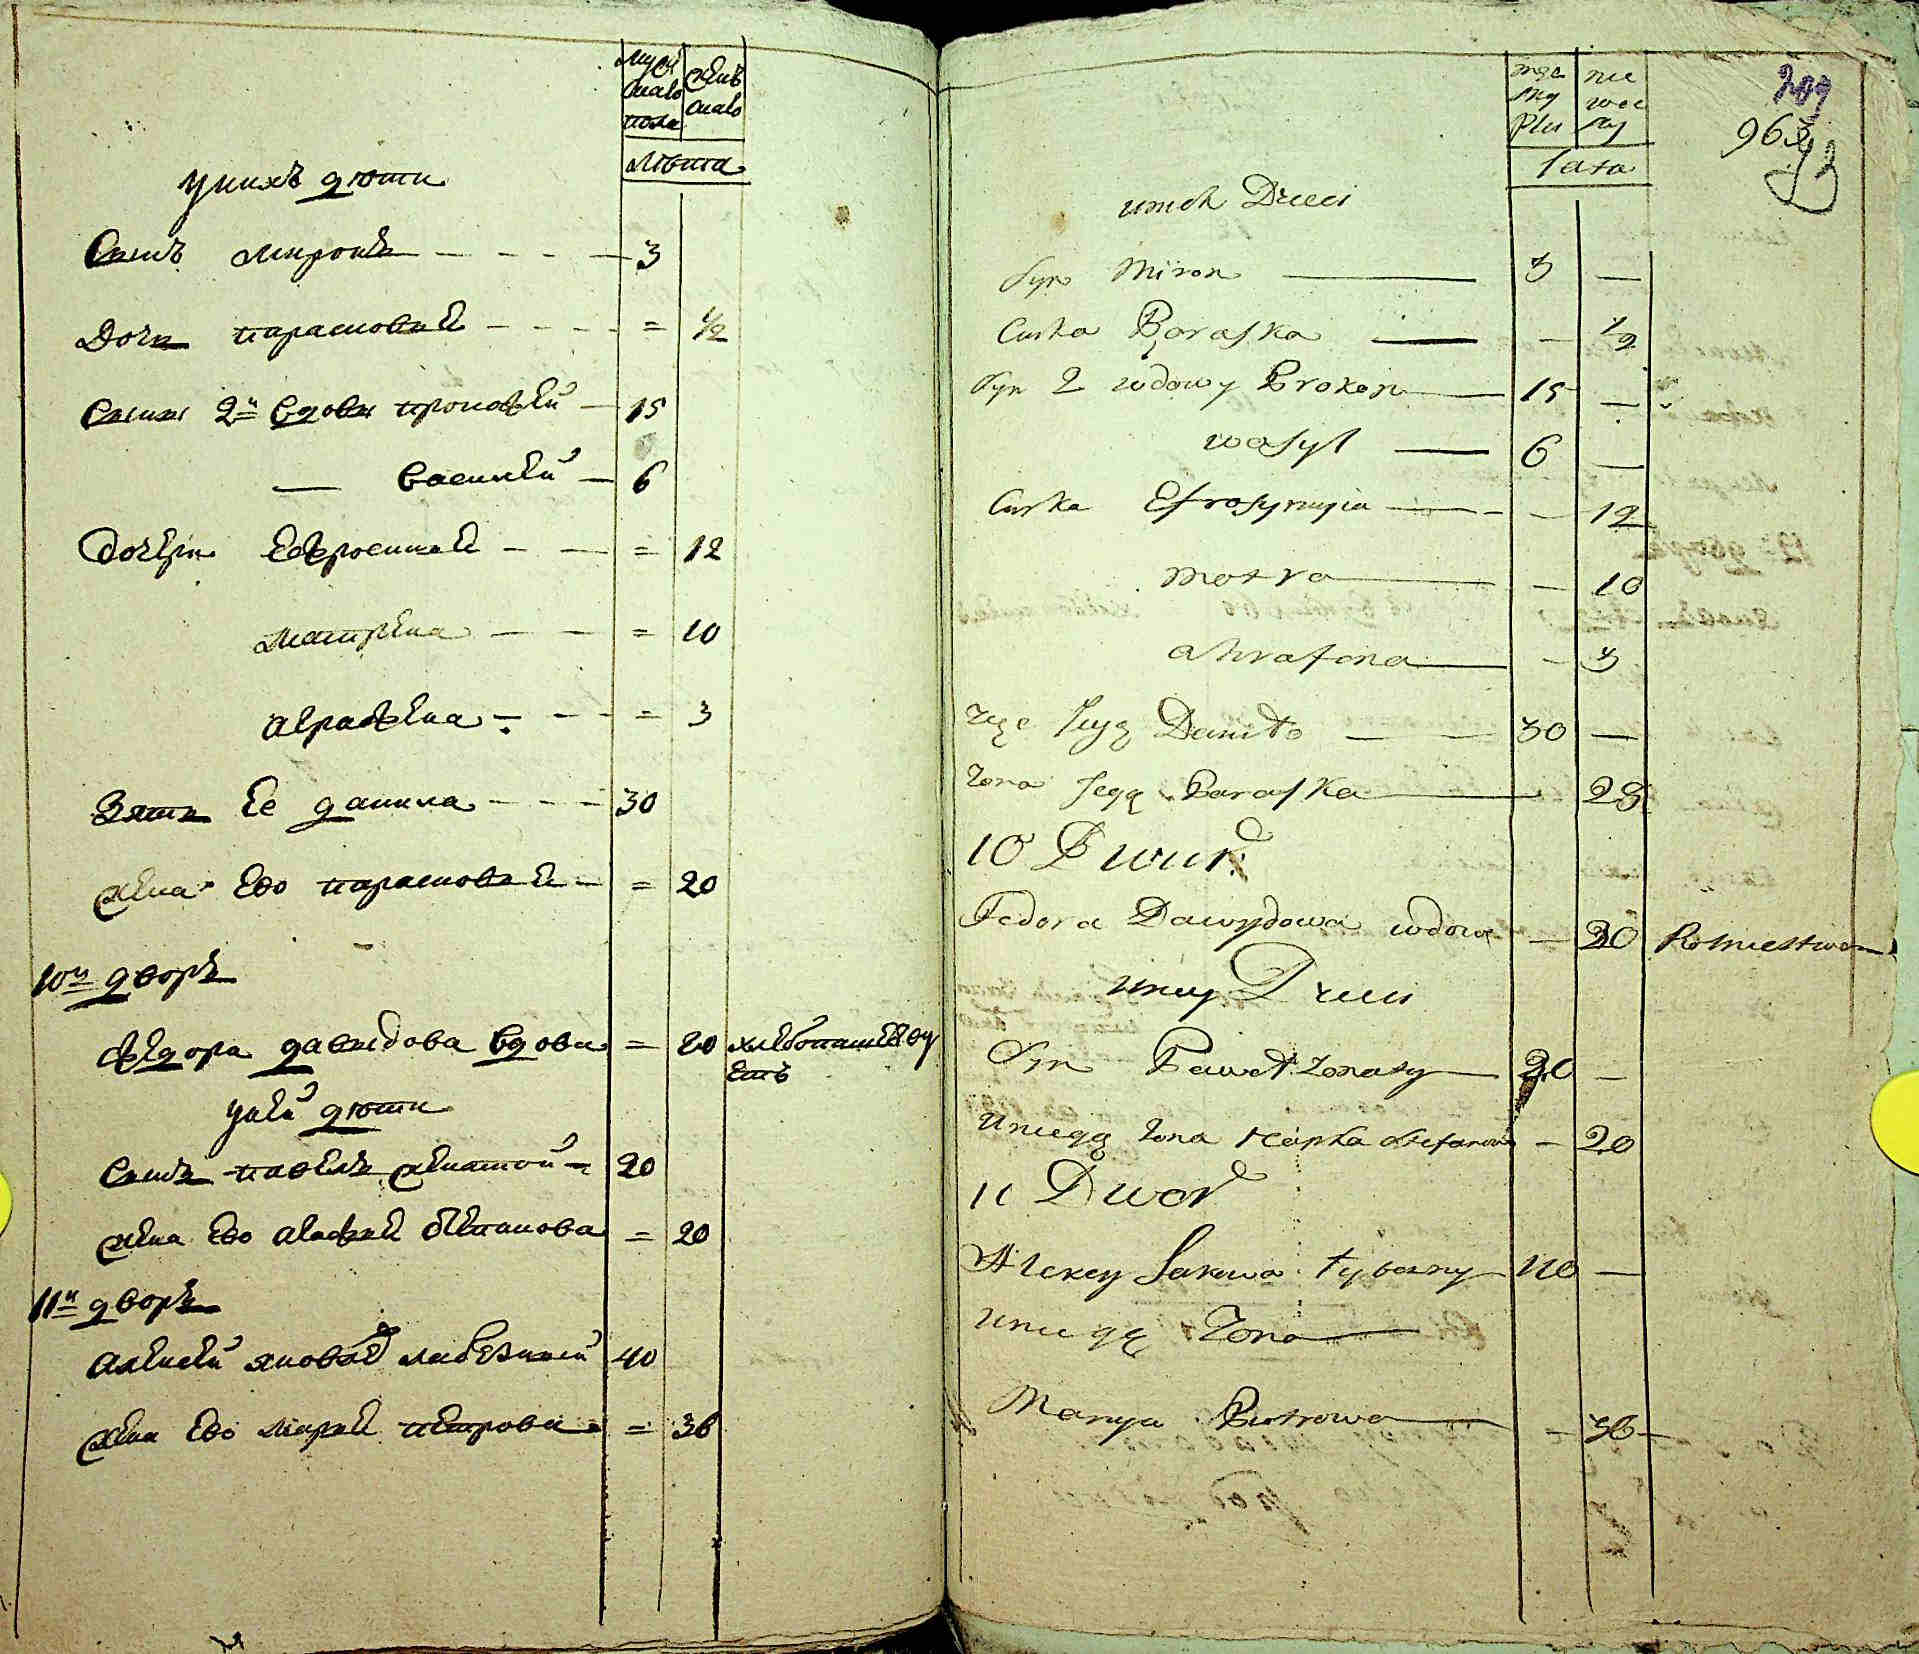 мужескаго пола
женскаго
лѣта
у нихъ дѣти
Сынъ миронъ 3
Дочь парасковия = 1/2
Сыны 2й вдовы прокофей 15
— василей 6
Дочери Ефросиния = 12
матрена = 10
аграфена = 3
Зять Ее данила 30
жена Ево парасковия = 20
10й дворъ
федора давыдова вдова = 20 хлебопашествуетъ
у ней дѣти
Сынъ павелъ женатой 20
жена Ево агафия степанова = 20
11й дворъ
алексей яковлев 40
жена Ево мария петрова = 36
męskey płci
niewesky
lata
unich Dzieci
Syn Miron 3 —
Curka Paraska — 1/2
Syn 2 wdowy Prokop 15 —
wasyl 6 —
Curka Efrosynyia — 12
motra — 10
ahrafena — 3
zęc Jeyą Daniło 30 —
zona Jegą Paraska — 28
10 Dwur
Fedora Dawydowa wdowa — 20 Rolniestwem
uniey Dzieci
Syn Paweł zonaty 20 —
uniegą zona Hapka Stefanowa — 20
11 Dwor
Alexey 40 —
uniegą zona
Marya Piotrowa — 36
963
93